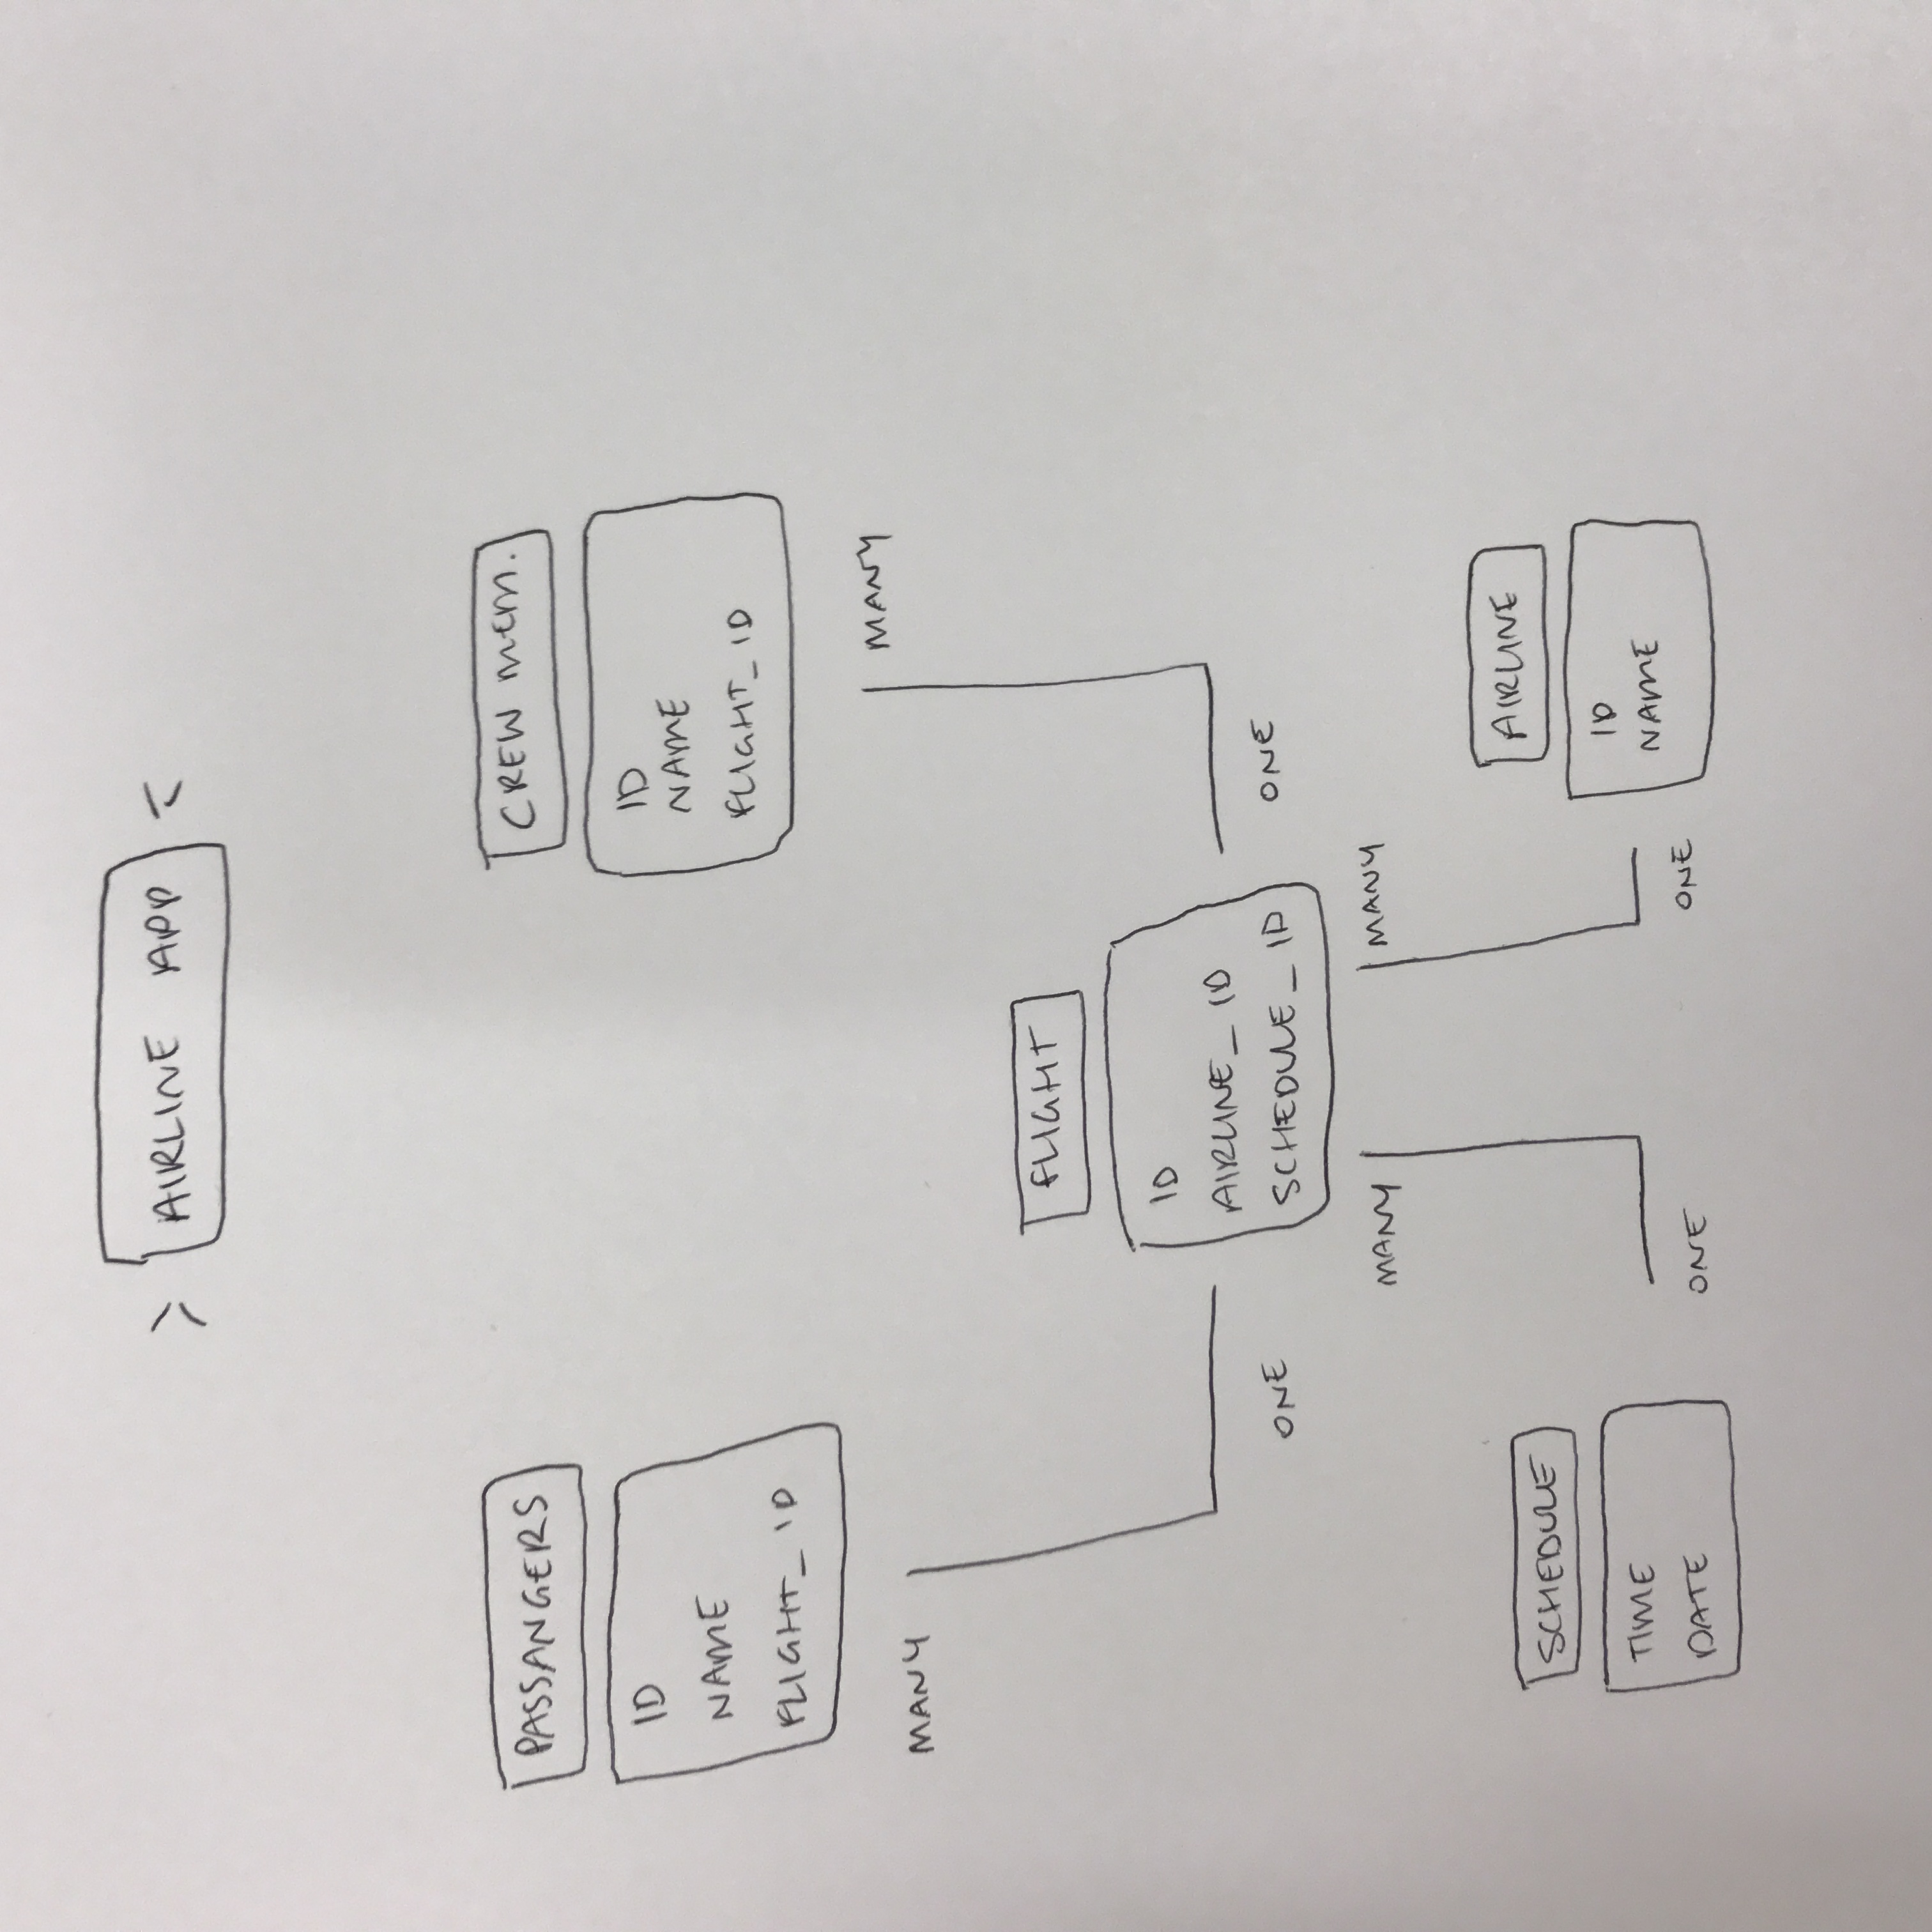 AIRLINE APP
PASSANGERS
ID
NAME
FLIGHT_ID
MANY
ONE
CREW MEM.
ID
NAME
FLIGHT_ID
MANY
ONE
FLIGHT
ID
AIRLINE_ID
SCHEDULE_ID
MANY
MANY
SCHEDULE
TIME
DATE
ONE
ONE
AIRLINE
ID
NAME